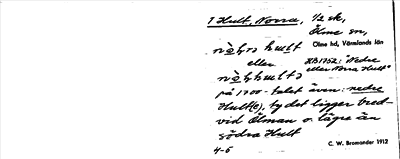 1 Hult, Norra, 1/2 sk,
Ölme sn,
Ölme hd, Värmlands län
nò̀rra hult
eller
HB 1752: "Nedre
eller Norra Hult"
på 1700-talet även: nedre
Hult(e), ty det ligger bred-
vid Ölman o. lägre än
södra Hult
4-5
C. W. Bromander 1912